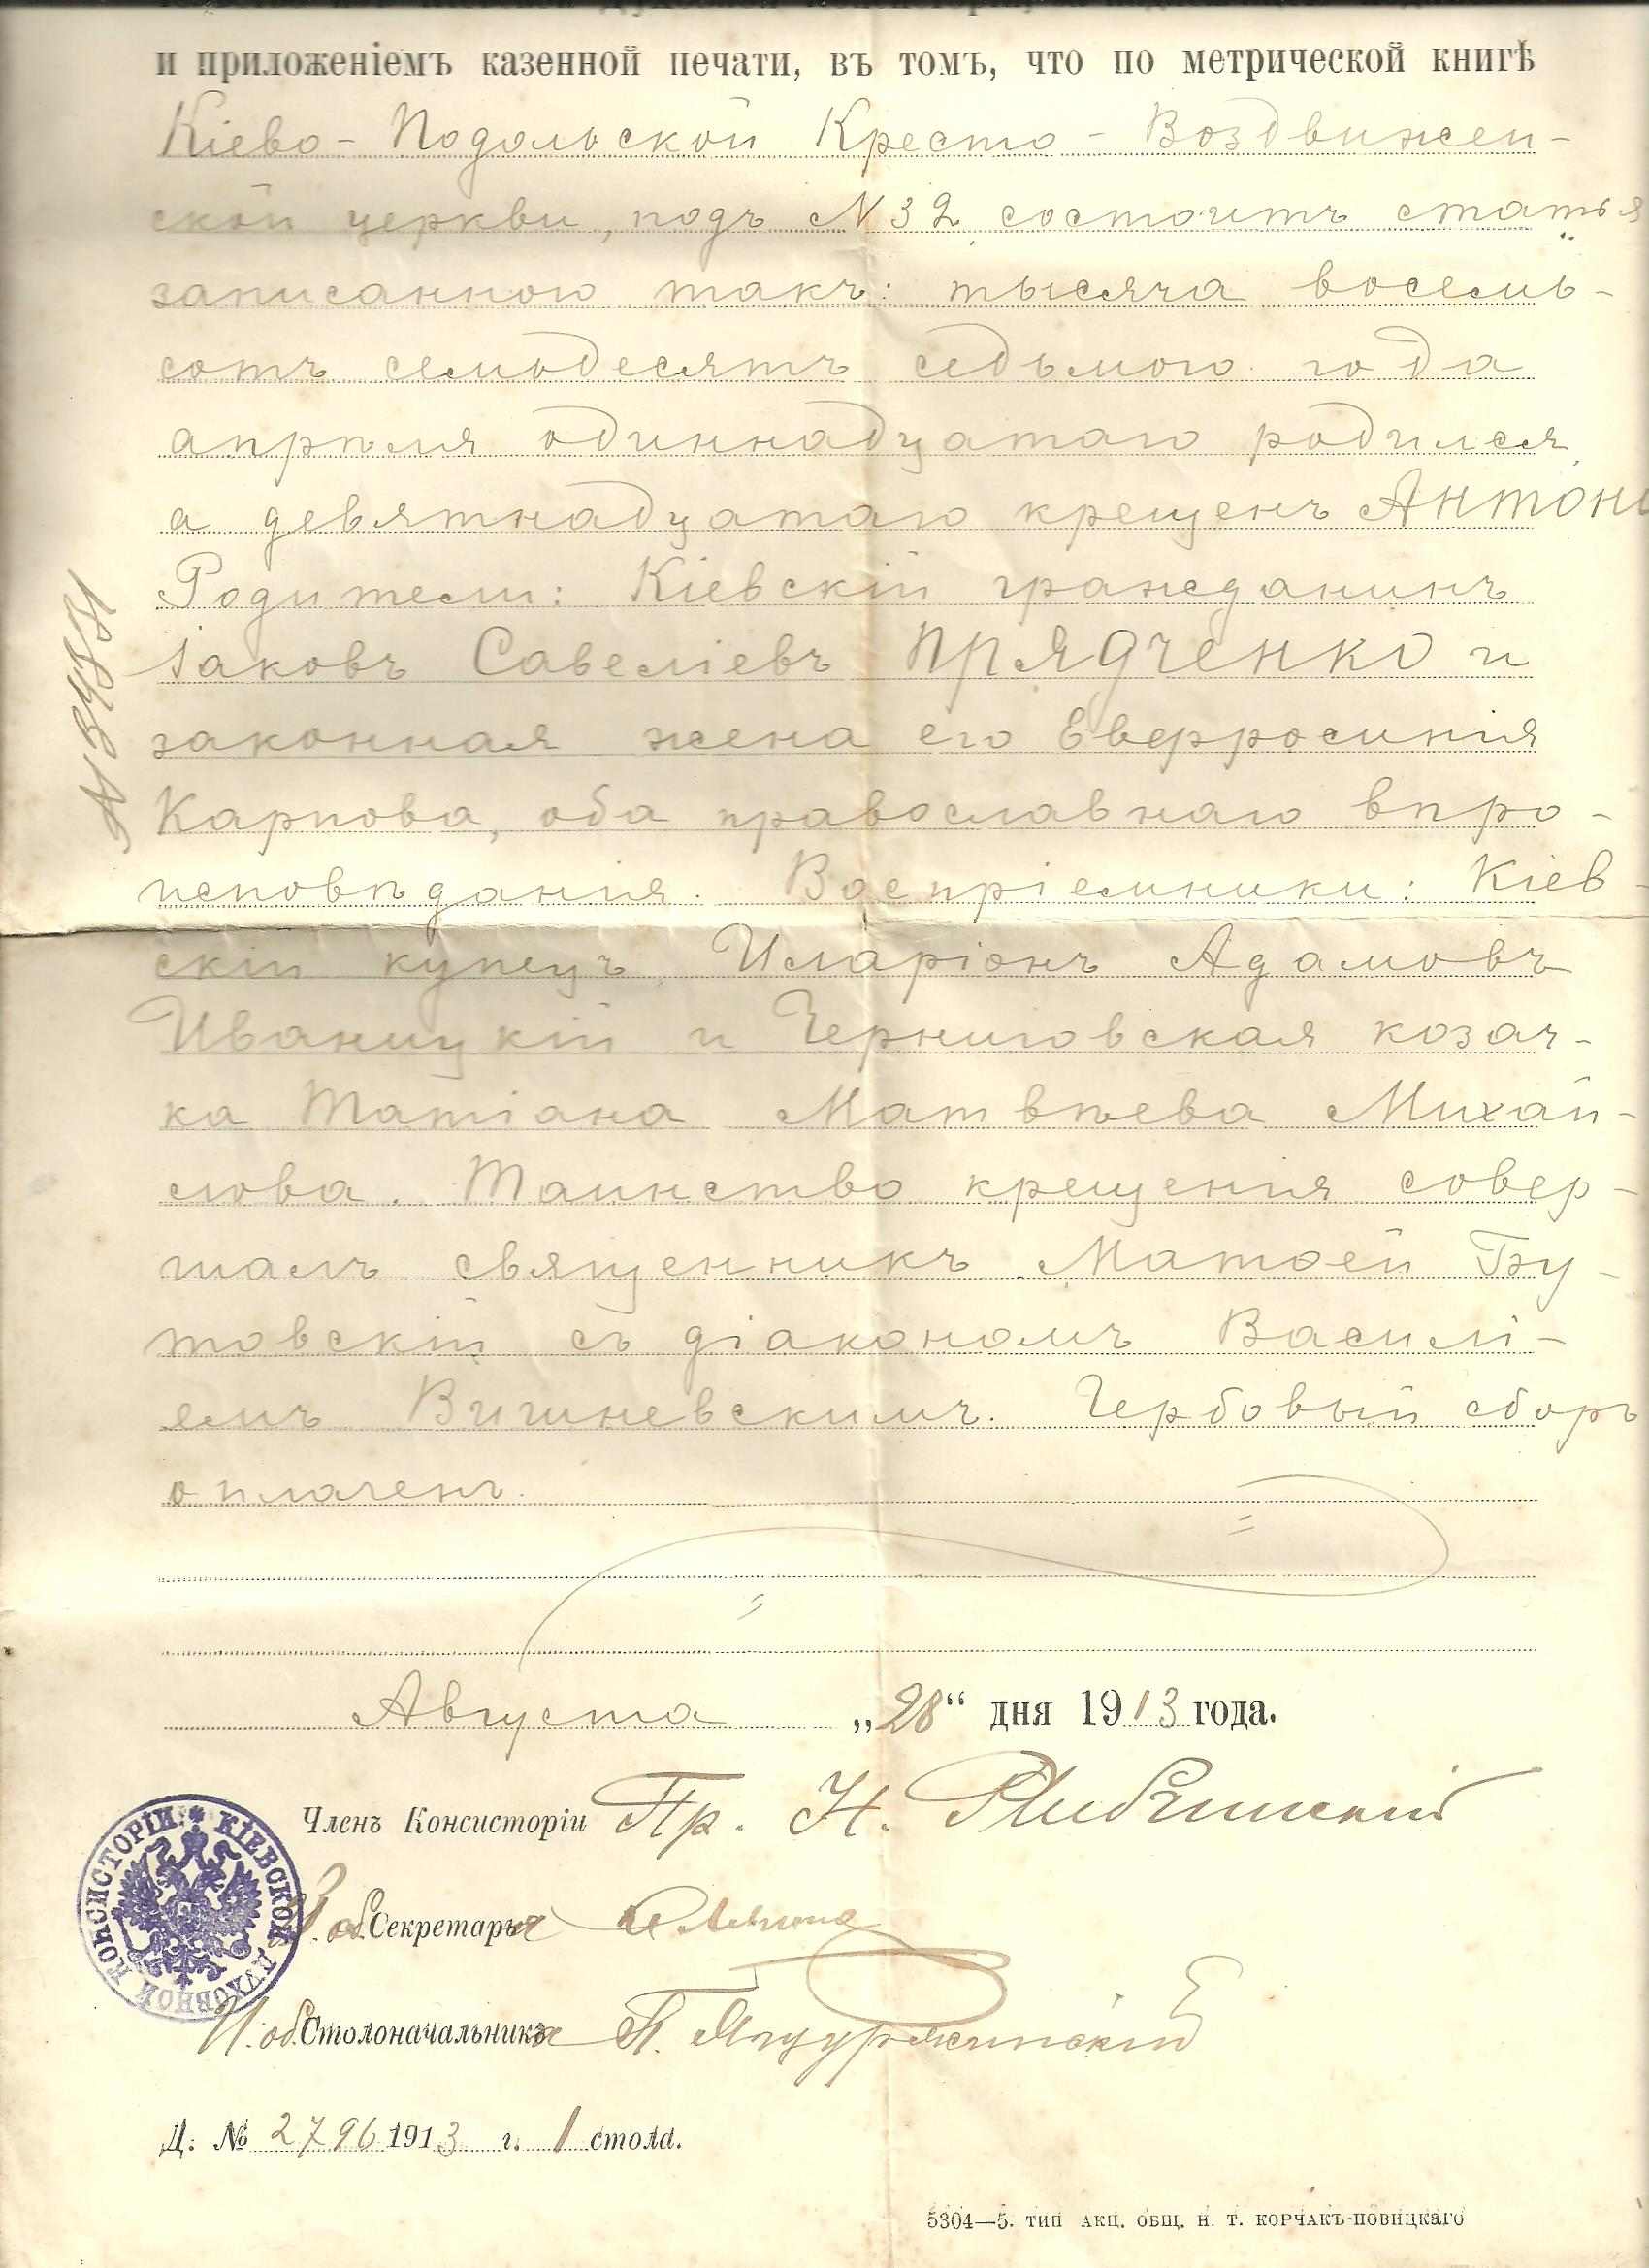 и приложеніемъ казенной печати, въ томъ, что по метрической книгѣ
Кіево-Подольской Кресто-Воздвижен-
ской церкви, подъ №32 состоитъ статья
записанною такъ: тысяча восемь-
сотъ семьдесятъ седьмого года
апрѣля одиннадцатаго родился,
а девятнадцатаго крещенъ Антоні
Родители: Кіевскій гражданинъ
Іаковъ Савеліевъ Прядченко и
законная жена его Евфросинія
Карпова, оба православнаго впро-
исповѣданія. Воспріемники: Кіев-
скій купецъ Иларіонъ Адамовъ
Иваницкій и Черниговская козач-
ка Татіана Матвѣева Михай-
лова. Таинство крещенія совер-
шалъ священникъ Матѳей Бу-
товскій съ діакономъ Василі-
емъ Вишневскимъ. Гербовый сборъ
оплаченъ.
Августа „28“ дня 1913 года.
Членъ Консисторіи Пр. Н.
И. об. Секретаря
И. об. Столоначальника П.
Д. № 2796 1913 г. 1 стола.
КІЕВСКОЙ ДУХОВНОЙ КОНСИСТОРІИ
5304—5. ТИП АКЦ. ОБЩ. Н. Т. КОРЧАКЪ-НОВИЦКАГО